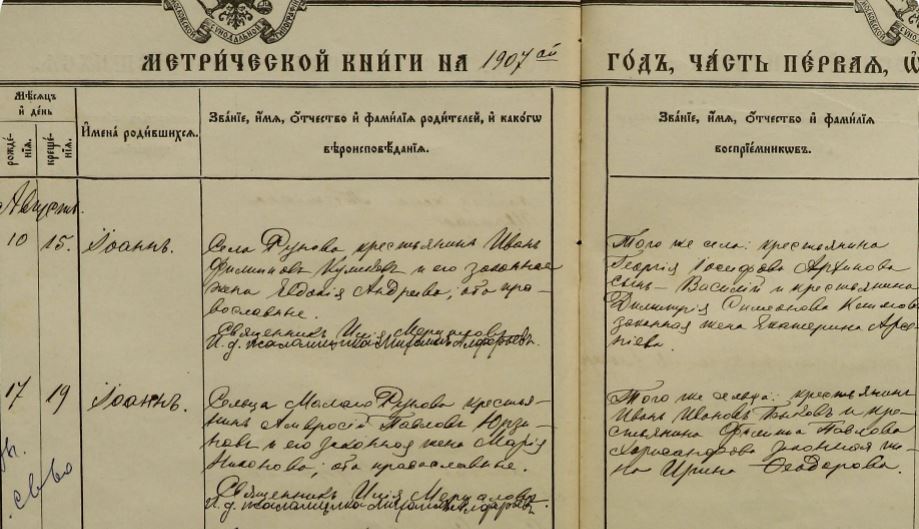 МОСКОВСКОЙ СѴНОДАЛЬНОЙ ТИПОГРАФІИ
МЕТРИ́ЧЕСКОЙ КНИ́ГИ НА 1907 ай ГО́ДЪ, ЧА́СТЬ ПЕ́РВАЯ, Ѿ
Мѣ́сѧцъ и҆ де́нь
рожде́нїѧ. креще́нїѧ.
И҆мена̀ роди́вшихсѧ.
Зва́нїе, и҆́мѧ, ѻ҆́тчество и҆ фами́лїѧ роди́телей, и҆ како́гѡ
вѣроисповѣ́данїѧ.
Зва́нїе, и҆́мѧ, ѻ҆́тчество и҆ фами́лїѧ
воспрїе́мникѡвъ.
Августъ.
10 15. Іоаннъ.
Села Дунова крестьянинъ Иванъ
Филипповъ Куликовъ и его законная
жена Евдокія Андреева; оба пра-
вославные.
Священникъ Илія
И. д. псаломщика
Того же села: крестьянина
Георгія Іосифова Архипова
сынъ Василій и крестьянина
Димитрія Симеонова
законная жена Екатерина Арсе-
ніева.
17 19 Іоаннъ.
Сельца Малаго Дунова крестья-
нинъ Амвросій Павловъ
и его законная жена Марія
Никонова; оба православные.
Священникъ Илія
И. д. псаломщика
Того же сельца: крестьянинъ
Иванъ Ивановъ и кре-
стьянина Филиппа Павлова
законная же-
на Ирина Ѳеодорова.